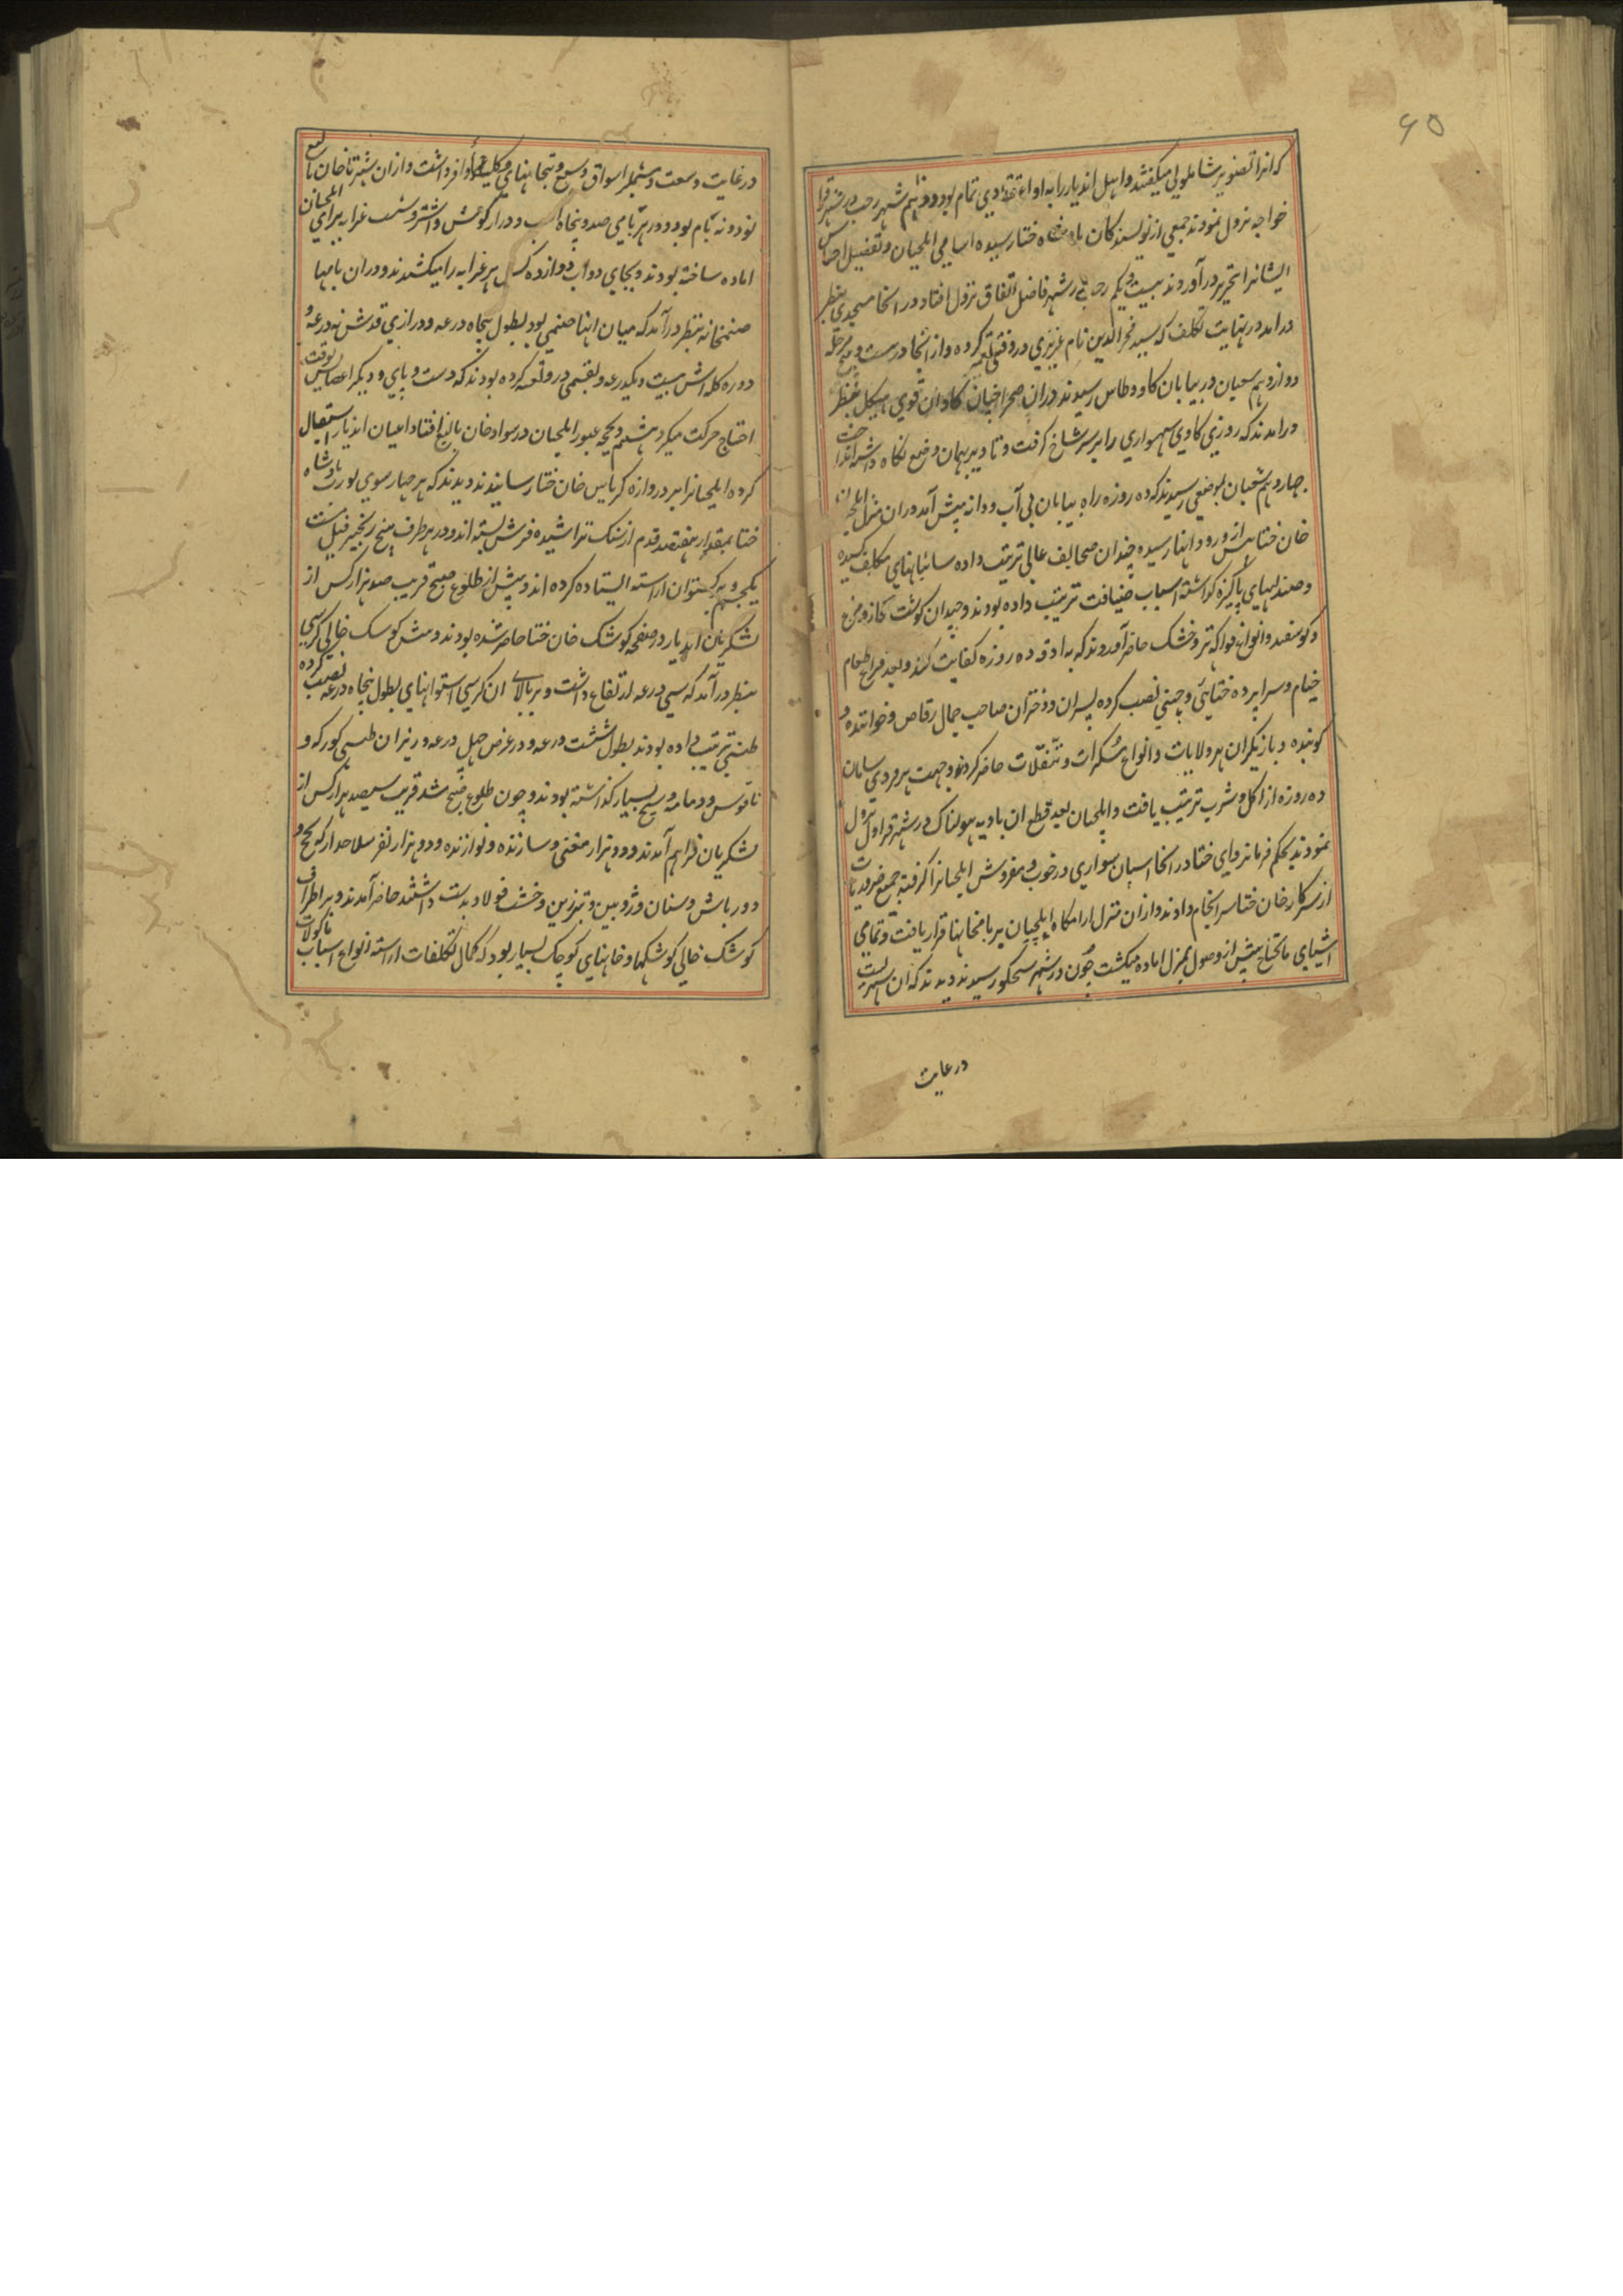 ۶۵
که انرا تصویر شاملونی میگفتند و اهل اندیار را به او اعتقادی تمام بود و دوم شهر رجب در شهر قرا
خواجه نزول نمودند جمعی از نویسندکان پادشاه ختا رسیده اسامی ایلچیان و تفصیل احناس
ایشانرا بتحریر درآوردند بیست و یکم رجب در شهر فاضل اتفاق نزول افتاد در انجا مسجدی بنظر
درامد در نهایت تکلف که سید فخرالدین نام عزیزی در وقتی کرده و از انجا در بیست و پنج مرحله
دوازدهم شعبان در بیابان کاو و طاس رسیدند دران صحرا خیان کاوان قوی هیکل بنظر
درامدند که روزی کاوی سواری را بر سر شاخ کرفت و تا دیر بهمان وضع نکاه داشته انداخت
چهاردهم شعبان بموضعی رسیدند که ده روزه راه بیابان بی آب و دانه پیش آمد و دران منزل ایلچیان
خان ختا پیش از ورود اینها رسیده چندان صحایف عالی ترتیب داده سائبانهای مکلف کشیده
و صندلیهای پاکیزه کذاشته اسباب ضیافت ترتیب داده بودند و چندان کوشت کاز و مرغ
و کوسفند و انواع فواکه تر و خشک حاضر آوردند که به اذوقه ده روزه کفایت کند و بعد فراغ طعام
خیام و سراپرده ختایی و چینی نصب کرده پسران و دختران صاحب جمال رقاص و خواننده و
کوینده و بازیکران هر ولایات و انواع مسکرات و تنقلات حاضر کردند و جهت هر مردی سامان
ده روزه از اکل و شرب ترتیب یافت و ایلچیان بعد قطع ان بادیه هولناک در شهر قراول نزول
نمودند بحکم فرمانروای ختا در انجا اسپان سواری و رخوت و مفروش ایلچیانرا کرفته جمیع ضروریات
از سرکار خان ختا سرانجام دادند و ازان منزل ارامکاه ایلچیان بر بامخانها قرار یافت و تمامی
اشیای مایحتاج پیش از وصول بمنزل اماده میکشت چون در شهر سکجور رسیدند دیدند که ان شهریست
در غایت
در غایت وسعت و مشتمل بر اسواق وسیع و بتخانهای و افر داشت و ازان شهر تا خان بالیغ
نود و نه یام بود و در هر یامی صد و پنجاه اسب و دراز کوش و اشتر و شصت عرابه برای ایلچیان
اماده ساخته بودند و بجای دواب دوازده کس هر عرابه را میکشیدند و دران یامها
صنمخانه بنظر درآمد که میان انها صنمی بود بطول پنجاه درعه و درازی قدش نه درعه و
دوره کله اش بیست و یکدرعه و بقسمی در وقلعه کرده بودند که دست و پای و دیکر اعضایش بوقت
احتیاج حرکت میکرد هشتم ذیحجه عبور ایلچیان در سواد خان بالیغ افتاد اعیان اندیار استقبال
کرده ایلچیانرا بر دروازه کریاس خان ختا رسانیدند دیدند که هر چهار سوی پادشاه
ختا بمقدار هفتصد قدم از سنک تراشیده فرش بسته اند و در هر طرف پنج زنجیر فیل مست
یکجهه و به کجستوان اراسته ایستاده کرده اند و پیش از طلوع صبح قریب صد هزار کس از
لشکریان اندیار در صفحه کوشک خان ختا حاضر شده بودند و پیش کوشک خالی کرسی
بنظر درآمد که سی درعه ارتفاع داشت و بر بالای ان کرسی استوانهای بطول پنجاه درعه نصب کرده
طنبی ترتیب داده بودند بطول شصت درعه و در عرض چهل درعه و زیران طنبی کورکه و
ناقوس و دمامه و سنج بسیار کذاشته بودند و چون طلوع صبح شد قریب سیصد هزار کس از
لشکریان فراهم آمدند و دو هزار مغنی و سازنده و نوازنده و دو هزار نفر سلاحدار که نجخ و
دورباش و سنان و ژوبین و تبرزین و خشت فولاد بدست داشتند حاضر آمدند و بر اطراف
کوشک خالی کوشکها و خانهای کوچک بسیار بود که بکمال تکلفات اراسته انواع اسباب ماکولات